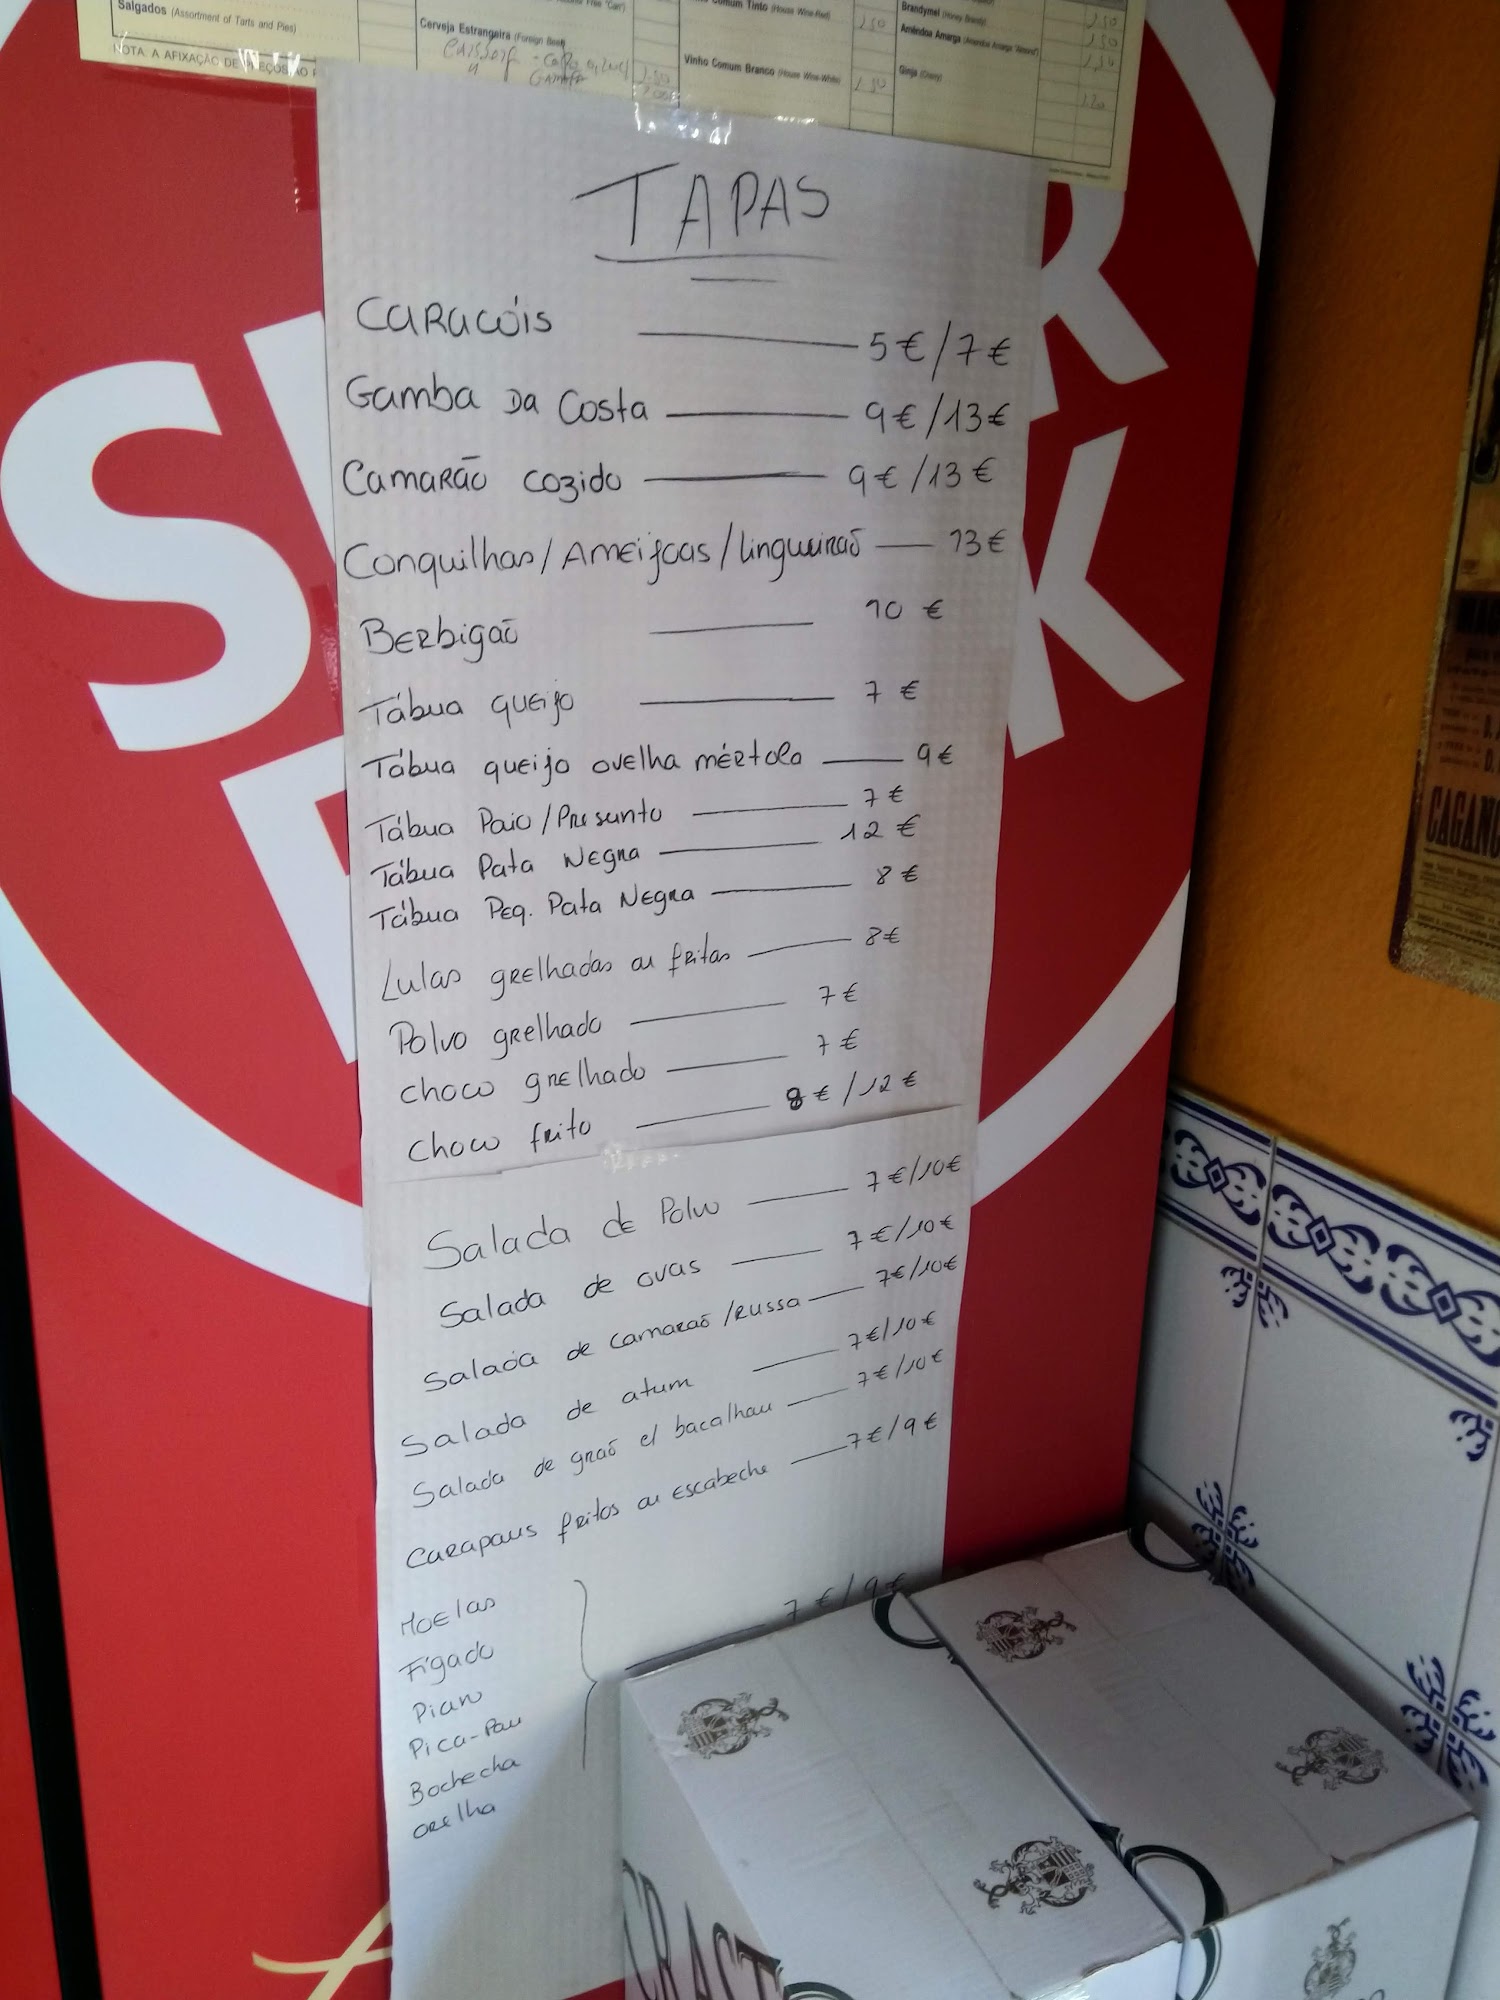 Salgados (Assortment of Tarts and Pies)
NOTA: A AFIXAÇÃO DE PREÇOS
Cerveja Estrangeira (Foreign Beer)
1.50
Comum Tinto (House Wine-Red)
1.50
Vinho Comum Branco (House Wine-White)
1.50
Brandymel (Honey Brandy)
1.50
Amêndoa Amarga (Amendoa Amarga "Almond")
1.50
Ginja (Cherry)
1.20
TAPAS
CARACÓIS 5€/7€
Gamba Da Costa 9€/13€
Camarão cozido 9€/13€
Conquilhas/Ameijoas/Lingueirão 13€
Berbigão 10 €
Tábua queijo 7 €
Tábua queijo ovelha mértola 9€
Tábua Paio/Presunto 7€
Tábua Pata Negra 12 €
Tábua Peq. Pata Negra 8 €
Lulas grelhadas ou fritas 8€
Polvo grelhado 7€
Choco grelhado 7€
Choco frito 8€/12€
Salada de Polvo 7€/10€
Salada de ovas 7€/10€
Salada de camarão/Russa 7€/10€
Salada de atum 7€/10€
Salada de grão c/ bacalhau 7€/10€
Carapaus fritos ou escabeche 7€/9€
Moelas 7€/9€
Fígado
Piano
Pica-Pau
Bochecha
Orelha
CRAST